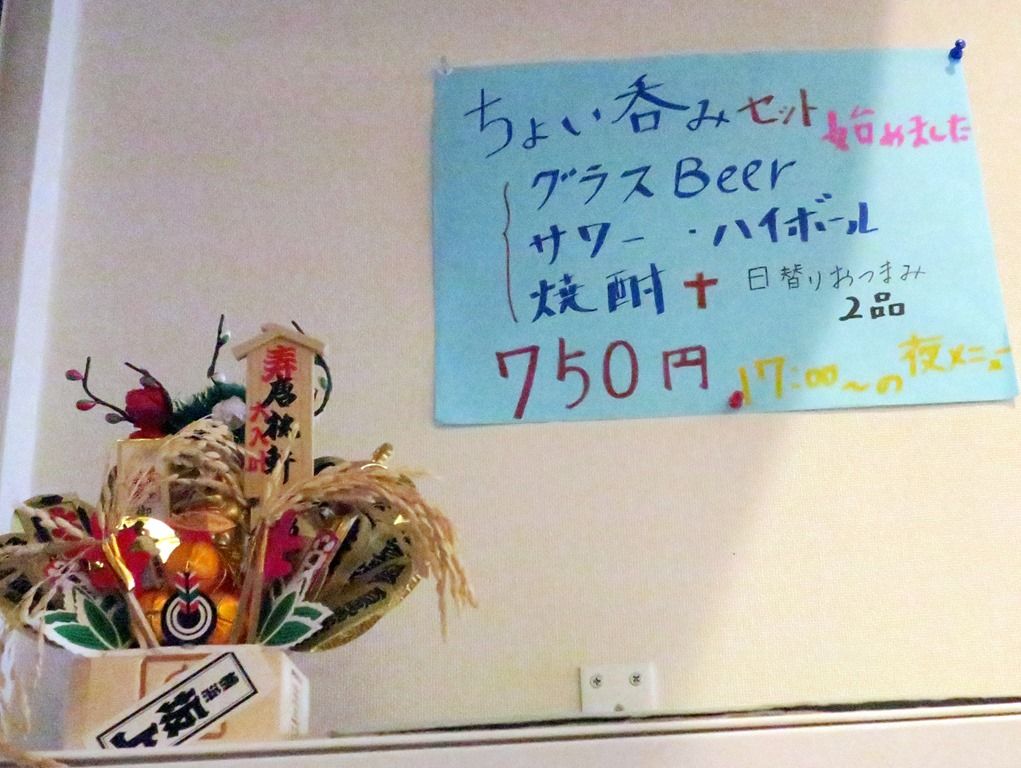 ちょい呑みセット始めました
グラスBeer
サワー・ハイボール
焼酎+日替りおつまみ
2品
750円 17:00~の夜メニュー
寿
大入叶